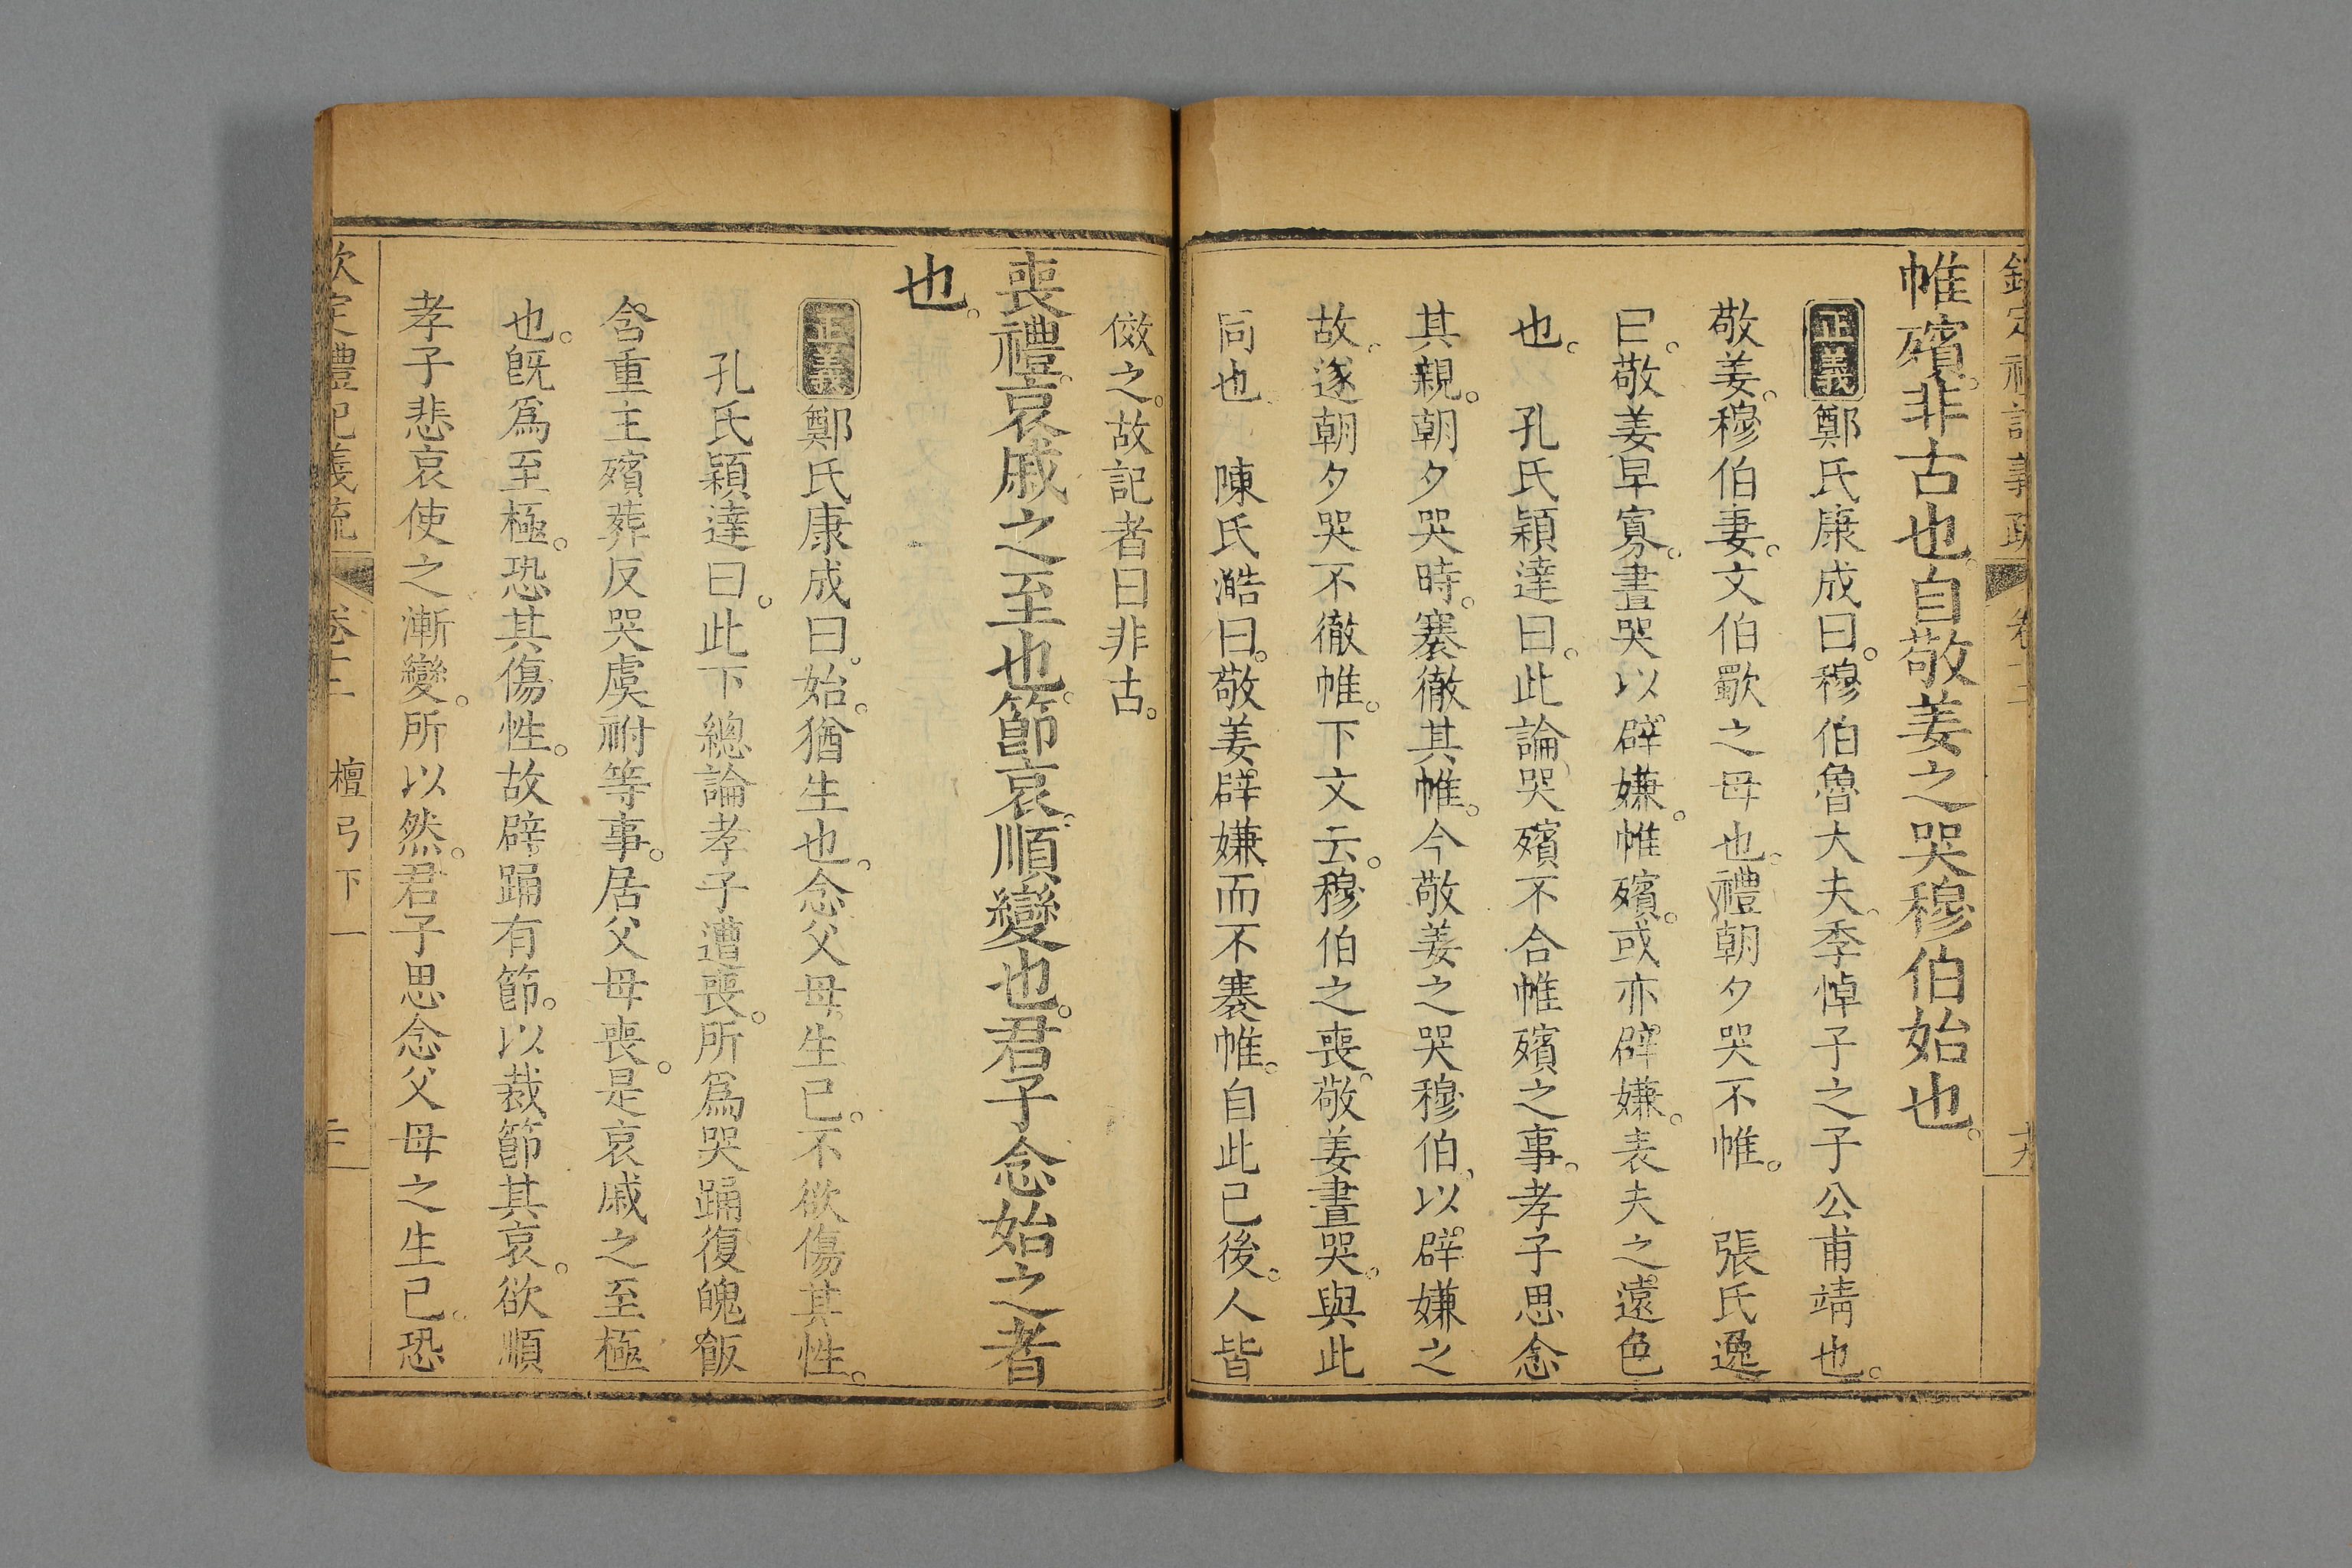 帷殯。非古也。自敬姜之哭穆伯始也。
正義鄭氏康成曰。穆伯魯大夫。季悼子之子公甫靖也。
敬姜。穆伯妻。文伯歜之母也。禮朝夕哭不帷。 張氏逸
曰。敬姜早寡。晝哭以辟嫌。帷殯。或亦辟嫌。表夫之遠色
也。 孔氏穎達曰。此論哭殯不合帷殯之事。孝子思念
其親。朝夕哭時。褰徹其帷。今敬姜之哭穆伯。以辟嫌之
故。遂朝夕哭不徹帷。下文云。穆伯之喪。敬姜晝哭。與此
同也。 陳氏澔曰。敬姜辟嫌而不褰帷。自此已後。人皆
傚之。故記者曰非古。
喪禮。哀戚之至也。節哀。順變也。君子念始之者
也。
正義鄭氏康成曰。始。猶生也。念父母生已。不欲傷其性。
孔氏穎達曰。此下總論孝子遭喪。所爲哭踊復魄飯
含重主殯葬反哭虞祔等事。居父母喪。是哀戚之至極
也。旣爲至極。恐其傷性。故辟踊有節。以裁節其哀。欲順
孝子悲哀使之漸變。所以然。君子思念父母之生已。恐
欽定禮記義疏 卷十二 檀弓下一